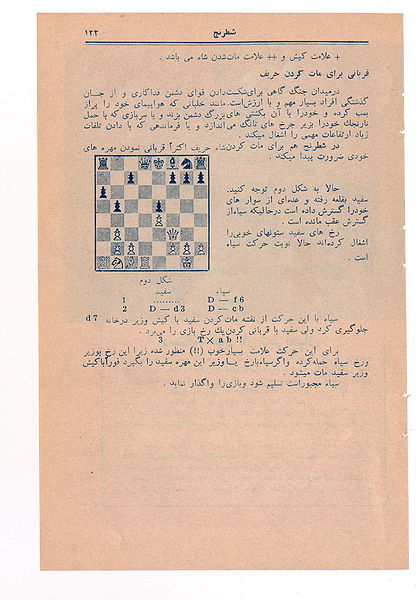 ۱۲۲ شطرنج
+ علامت کیش و ++ علامت مات‌شدن شاه می باشد .
قربانی برای مات کردن حریف
درمیدان جنگ گاهی برای‌شکست‌دادن قوای دشمن فداکاری و از جـان
گذشتگی افراد بسیار مهم و با ارزش‌است. مانند خلبانی که هواپیمای خود را پراز
بمب کرده و خودرا با آن بکشتی های‌بزرگ دشمن بزند و یا سربازی که با حمل
نارنجك خودرا بزیر چرخ های تانك می‌اندازد و یا فرماندهی که با دادن تلفات
زیاد ارتفاعات مهمی را اشغال میکند .
در شطرنج هم برای مات کردن‌شاه حریف اکثراً قربانی نمودن مهره های
خودی ضرورت پیدا میکند .
حالا به شکل دوم توجه کنید.
سفید بقلعه رفته و عده‌ای از سوار های
خودرا گسترش داده است درحالیکه سیاه‌از
گسترش عقب مانده است .
رخ های سفید ستونهای خوبی‌را
اشغال کرده‌اند حالا نوبت حرکت سیاه
است .
شکل دوم
سفید سیاه
1 ......... D — f6
2 D — d3 D — cb
سیاه با این حرکت از نقشه مات‌کردن سفید با کیش وزیر درخانه d7
جلوگیری کرد ولی سفید با قربانی کردن‌یك رخ بازی را می‌برد .
3 T × ab !!
برای این حرکت علامت بسیارخوب (!!) منظور شده زیرا این رخ بوزیر
ورخ سیاه حمله‌کرده واگرسیاه‌بارخ یـاوزیر این مهره سفید را بگیرد فوراًباکیش
وزیر سفید مات میشود .
سیاه مجبوراست تسلیم شود وبازی‌را واگذار نماید .